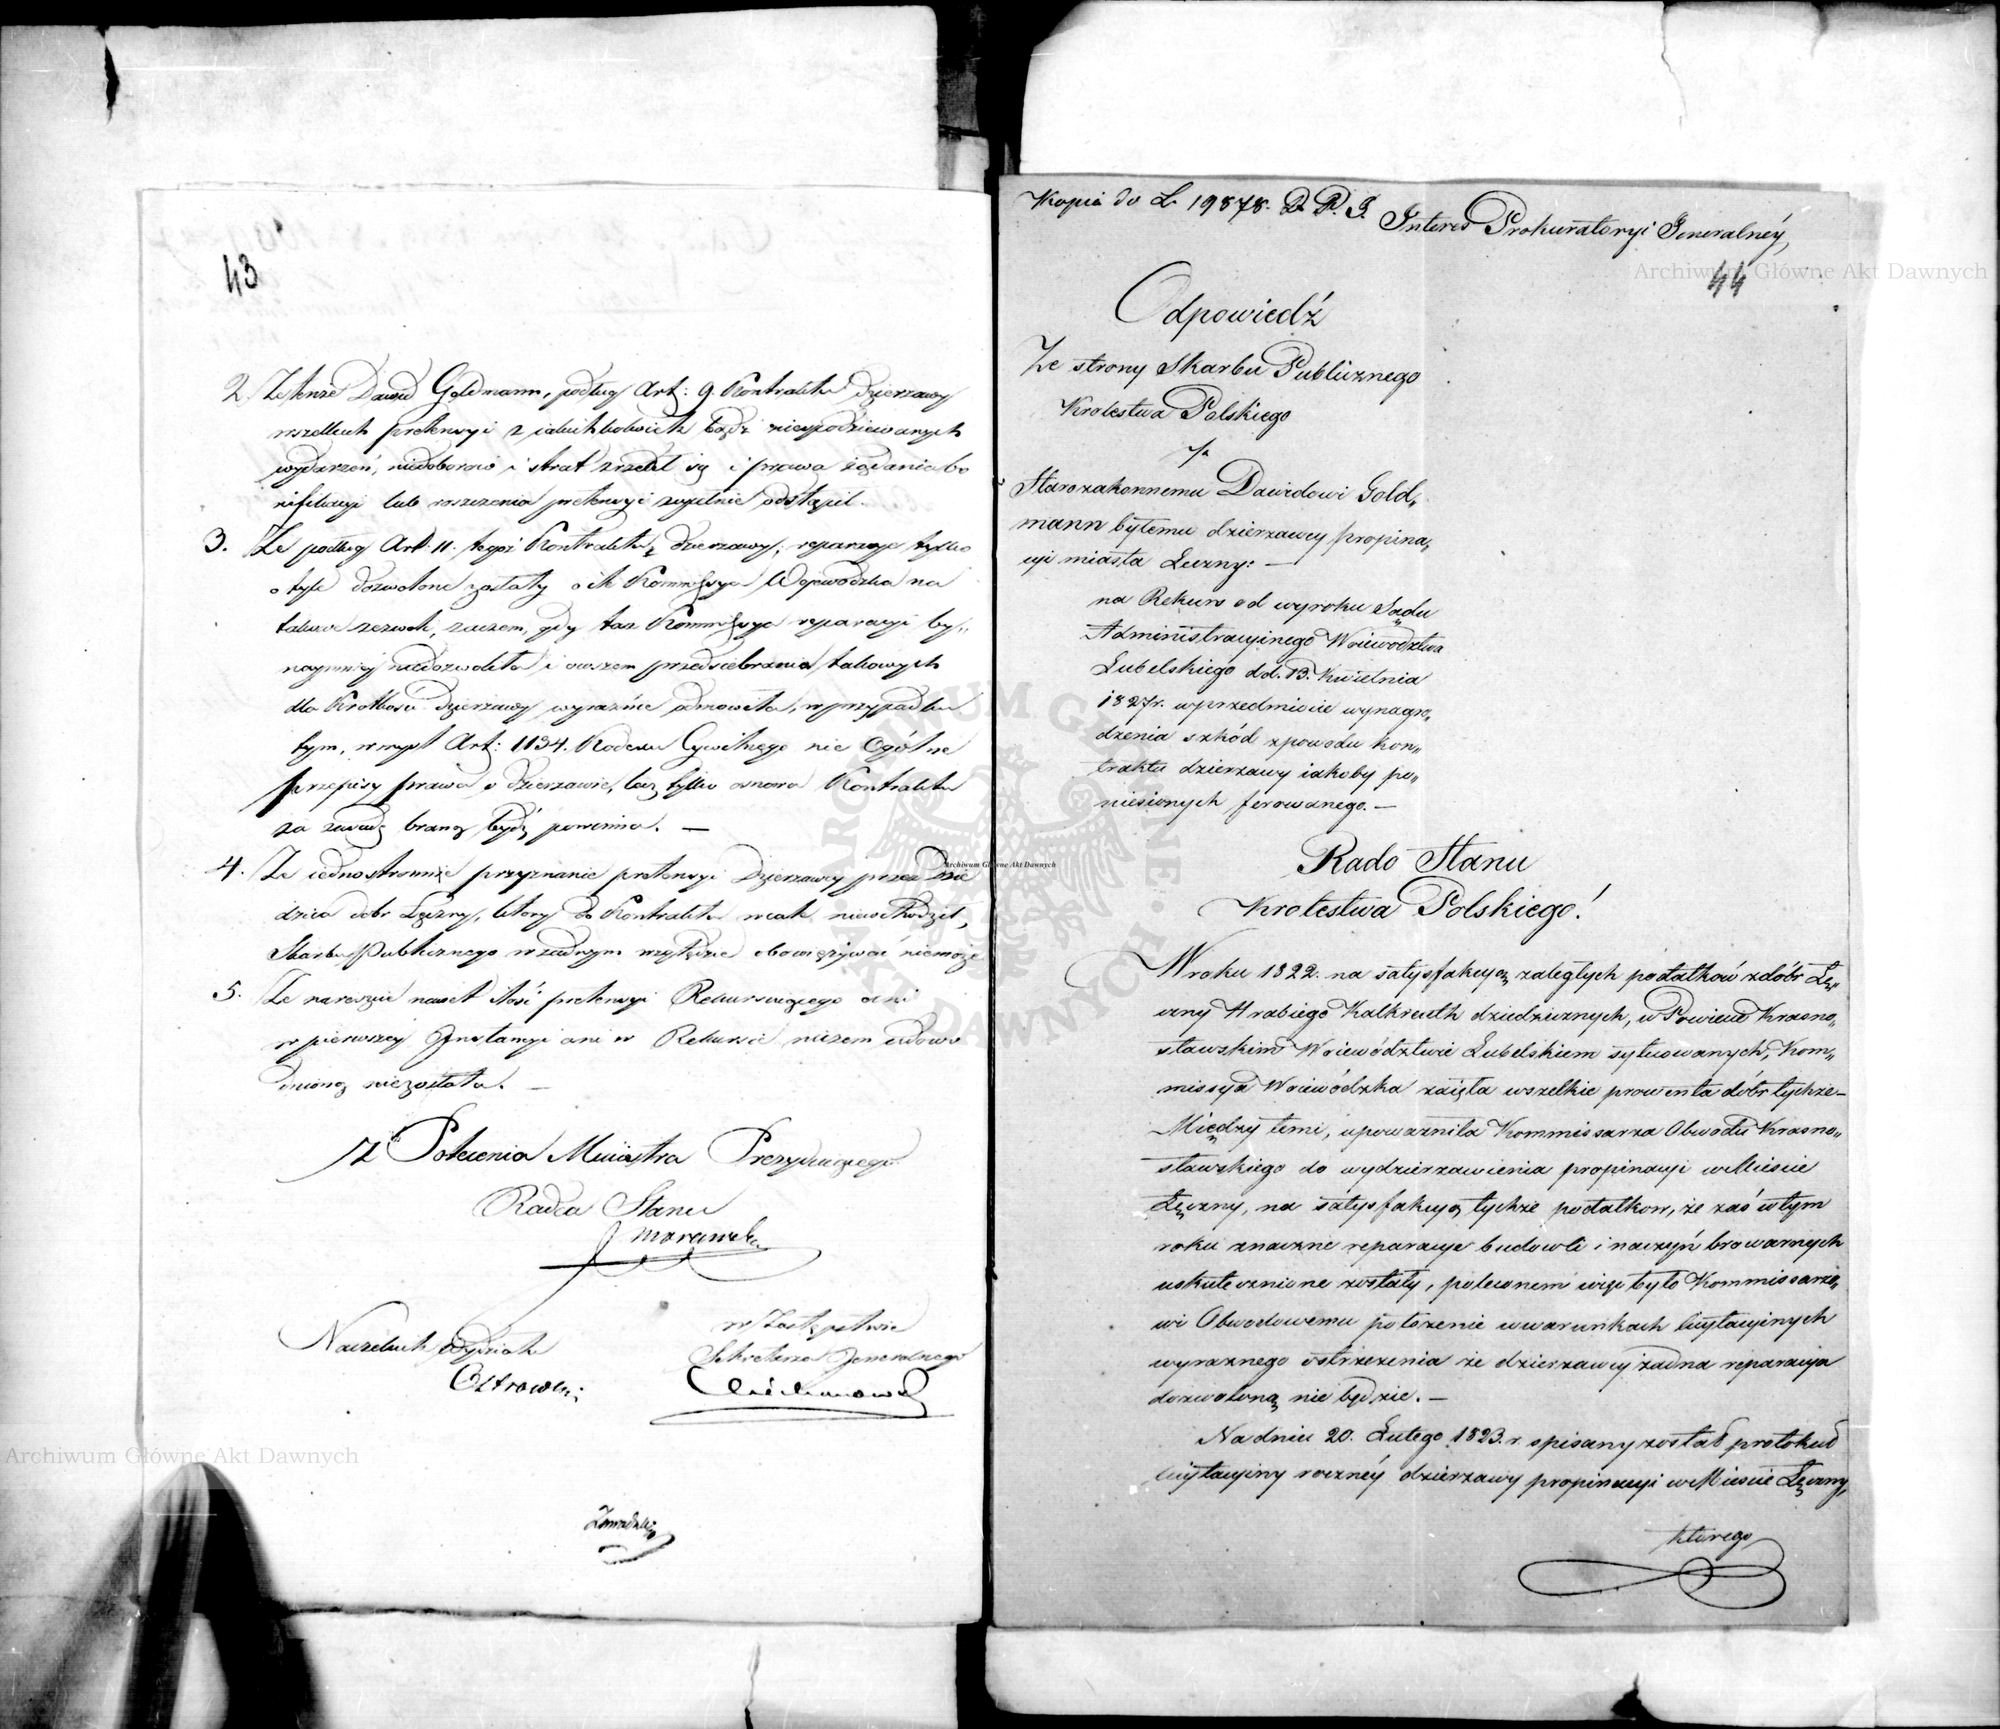 43
2. Że tenże Dawid Goldmann, podług Art: 9. Kontraktu Dzierzawy
wszelkich pretensyi z iakichkolwiek bądź niespodziewanych
wydarzeń, niedoborów i strat zrzekł się i prawa żądania bo
nifikacyi lub roszczenia pretensyi zupełnie odstąpił.
3. Że podług Art. 11. tegoż Kontraktu dzierzawy, reparacye tylko
o tyle dozwolone zostały o ile Kommissya Woiewódzka na
takowe zezwoli, zaczem, gdy taż Kommissya reparacyi by„
naymniey niedozwoliła i owszem przedsiebrania takowych
dla krotkości Dzierzawy wyraźnie odmówiła, w przypadku
tym, w myśl Art: 1134. Kodexu Cywilnego nie Ogólne
przepisy prawa o dzierzawie, lecz tylko osnowa Kontraktu
za zasadę braną bydź powinna. —
4. Że iednostronne przyznanie pretensyi Dzierzawcy przez Dzie
dzica dobr Łęczny, ktory do Kontraktu wcale niewchodził,
Skarbu Publicznego w żadnym względzie obowięzywać niemoże
5. Że nareszcie nawet ilość pretensyi Rekursuiącego ani
w pierwszey Instancyi ani w Rekursie niczem udowo
dnioną niezostała. —
Z Polecenia Ministra Prezyduiącego
Radca Stanu
Morawski
Naczelnik Wydziału
Ostrowski
w Zastępstwie
Sekretarza Jeneralnego
Zawadzki
Kopia do L. 19878. D. P. J.
Interes Prokuratoryi Jeneralnéy,
44
Odpowiedź
Ze strony Skarbu Publicznego
Krolestwa Polskiego
Starozakonnemu Dawidowi Gold„
mann byłemu dzierzawcy propina„
cyi miasta Łeczny: —
na Rekurs od wyroku Sądu
Administracyinego Woiewodztwa
Lubelskiego dd. 13. Kwietnia
1827r. w przedmiocie wynagro„
dzenia szkód z powodu kon„
traktu dzierzawy iakoby po„
niesionych ferowanego. —
Rado Stanu
Krolestwa Polskiego!
W roku 1822. na satysfakcyą zaległych podatków z dóbr Łę„
czny Hrabiego Kalkreuth dziedzicznych, w Powiecie Krasno„
stawskim Woiewództwie Lubelskiem sytuowanych, Kom„
missya Woiewódzka zaięła wszelkie prowenta dóbr tychże —
Między temi, upoważniła Kommissarza Obwodu Krasno„
stawskiego do wydzierzawienia propinacyi w Mieście
Łęczny, na satysfakcyą tychże podatkow, że zaś w tym
roku znaczne reparacye budowli i naczyń browarnych
uskutecznione zostały, poleconem więc było Kommissarzo„
wi Obwodowemu położenie w warunkach licytacyinych
wyraznego ostrzezenia że dzierzawcy żadna reparacya
dozwoloną nie będzie. —
Na dniu 20. Lutego 1823. r. spisany został protokuł
licytacyiny roczney dzierzawy propinacyi w Mieście Łęczny,
ktorego
Archiwum Główne Akt Dawnych
Archiwum Główne Akt Dawnych
Archiwum Główne Akt Dawnych
ARCHIWUM GŁÓWNE AKT DAWNYCH